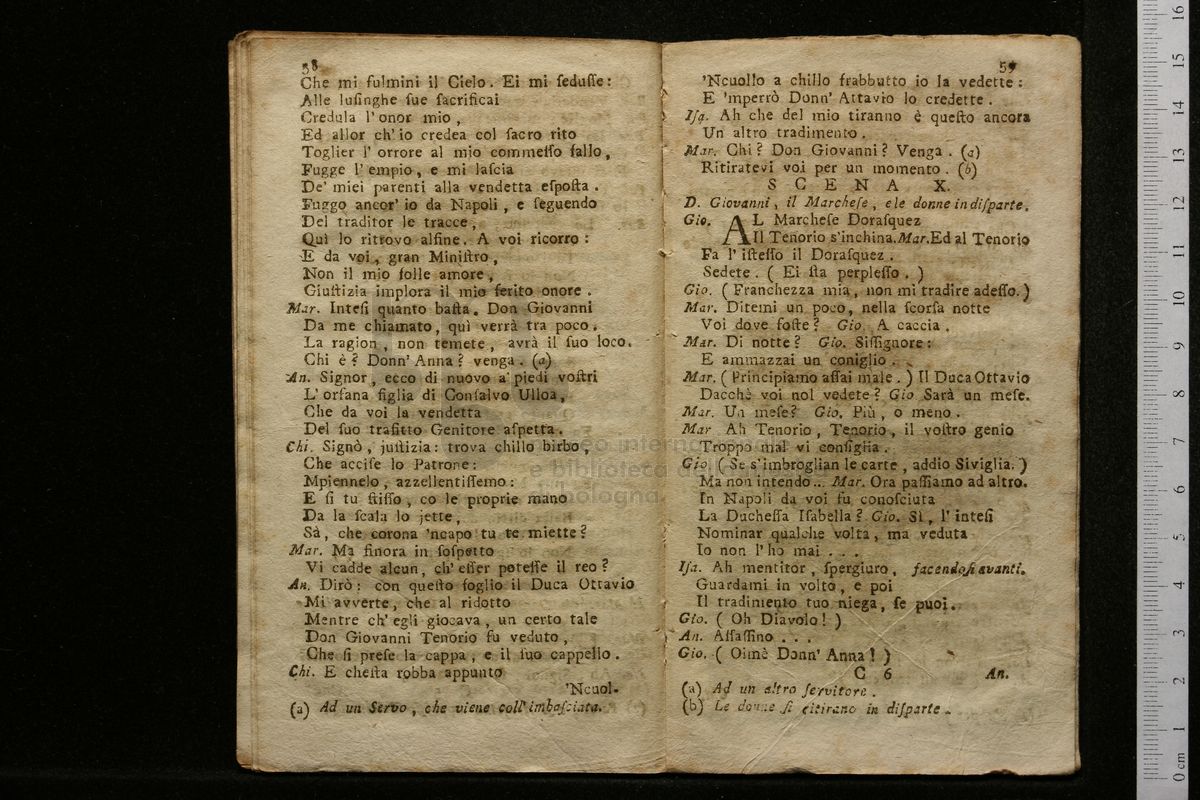 58
Che mi fulmini il Cielo. Ei mi ſeduſſe:
Alle luſinghe ſue ſacrificai
Credula l'onor mio,
Ed allor ch'io credea col ſacro rito
Toglier l'orrore al mio commeſſo fallo,
Fugge l'empio, e mi laſcia
De' miei parenti alla vendetta eſpoſta.
Fuggo ancor' io da Napoli, e ſeguendo
Del traditor le tracce,
Quì lo ritrovo alfine. A voi ricorro:
E da voi, gran Miniſtro,
Non il mio folle amore,
Giuſtizia implora il mio ferito onore.
Mar. Inteſi quanto baſta. Don Giovanni
Da me chiamato, quì verrà tra poco.
La ragion, non temete, avrà il ſuo loco.
Chi è? Donn' Anna? venga. (a)
An. Signor, ecco di nuovo a' piedi voſtri
L'orfana figlia di Conſalvo Ulloa,
Che da voi la vendetta
Del ſuo trafitto Genitore aſpetta.
Chi. Signò, juſtizia: trova chillo birbo,
Che acciſe lo Patrone:
Mpiennelo, azzellentiſſemo:
E ſi tu ſtiſſo, co le proprie mano
Da la ſcala lo jette,
Sà, che corona 'ncapo tu te miette?
Mar. Ma finora in ſoſpetto
Vi cadde alcun, ch'eſſer poteſſe il reo?
An. Dirò: con queſto foglio il Duca Ottavio
Mi avverte, che al ridotto
Mentre ch'egli giocava, un certo tale
Don Giovanni Tenorio fu veduto,
Che ſi preſe la cappa, e il ſuo cappello.
Chi. E cheſta robba appunto
'Ncuol-
(a) Ad un Servo, che viene coll'imbaſciata.
59
'Ncuollo a chillo frabbutto io la vedette:
E 'mperrò Donn' Attavio lo credette.
Iſa. Ah che del mio tiranno è queſto ancora
Un altro tradimento.
Mar. Chi? Don Giovanni? Venga. (a)
Ritiratevi voi per un momento. (b)
SCENA X.
D. Giovanni, il Marcheſe, e le donne in diſparte.
Gio. AL Marcheſe Doraſquez
Il Tenorio s'inchina. Mar. Ed al Tenorio
Fa l'iſteſſo il Doraſquez.
Sedete. (Ei ſta perpleſſo.)
Gio. (Franchezza mia, non mi tradire adeſſo.)
Mar. Ditemi un poco, nella ſcorſa notte
Voi dove foſte? Gio. A caccia.
Mar. Di notte? Gio. Siſſignore:
E ammazzai un coniglio.
Mar. (Principiamo aſſai male.) Il Duca Ottavio
Dacchè voi nol vedete? Gio Sarà un meſe.
Mar. Un meſe? Gio. Più, o meno.
Mar Ah Tenorio, Tenorio, il voſtro genio
Troppo mal vi conſiglia.
Gio. (Se s'imbroglian le carte, addio Siviglia.)
Ma non intendo... Mar. Ora paſſiamo ad altro.
In Napoli da voi fu conoſciuta
La Ducheſſa Iſabella? Gio. Sì, l'inteſi
Nominar qualche volta, ma veduta
Io non l'ho mai...
Iſa. Ah mentitor, ſpergiuro, facendoſi avanti.
Guardami in volto, e poi
Il tradimento tuo niega, ſe puoi.
Gio. (Oh Diavolo!)
An. Aſſaſſino...
Gio. (Oimè Donn' Anna!)
C 6 An.
(a) Ad un altro ſervitore.
(b) Le donne ſi ritirano in diſparte.